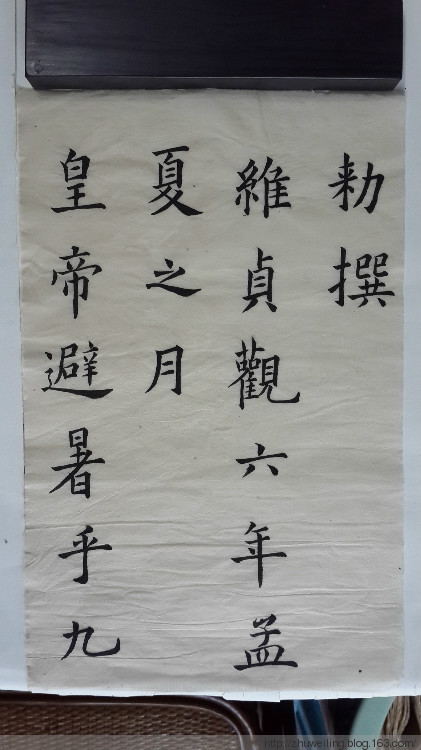 勑撰
維貞觀六年孟
夏之月
皇帝避暑乎九
http://zhuweiling.blog.163.com/